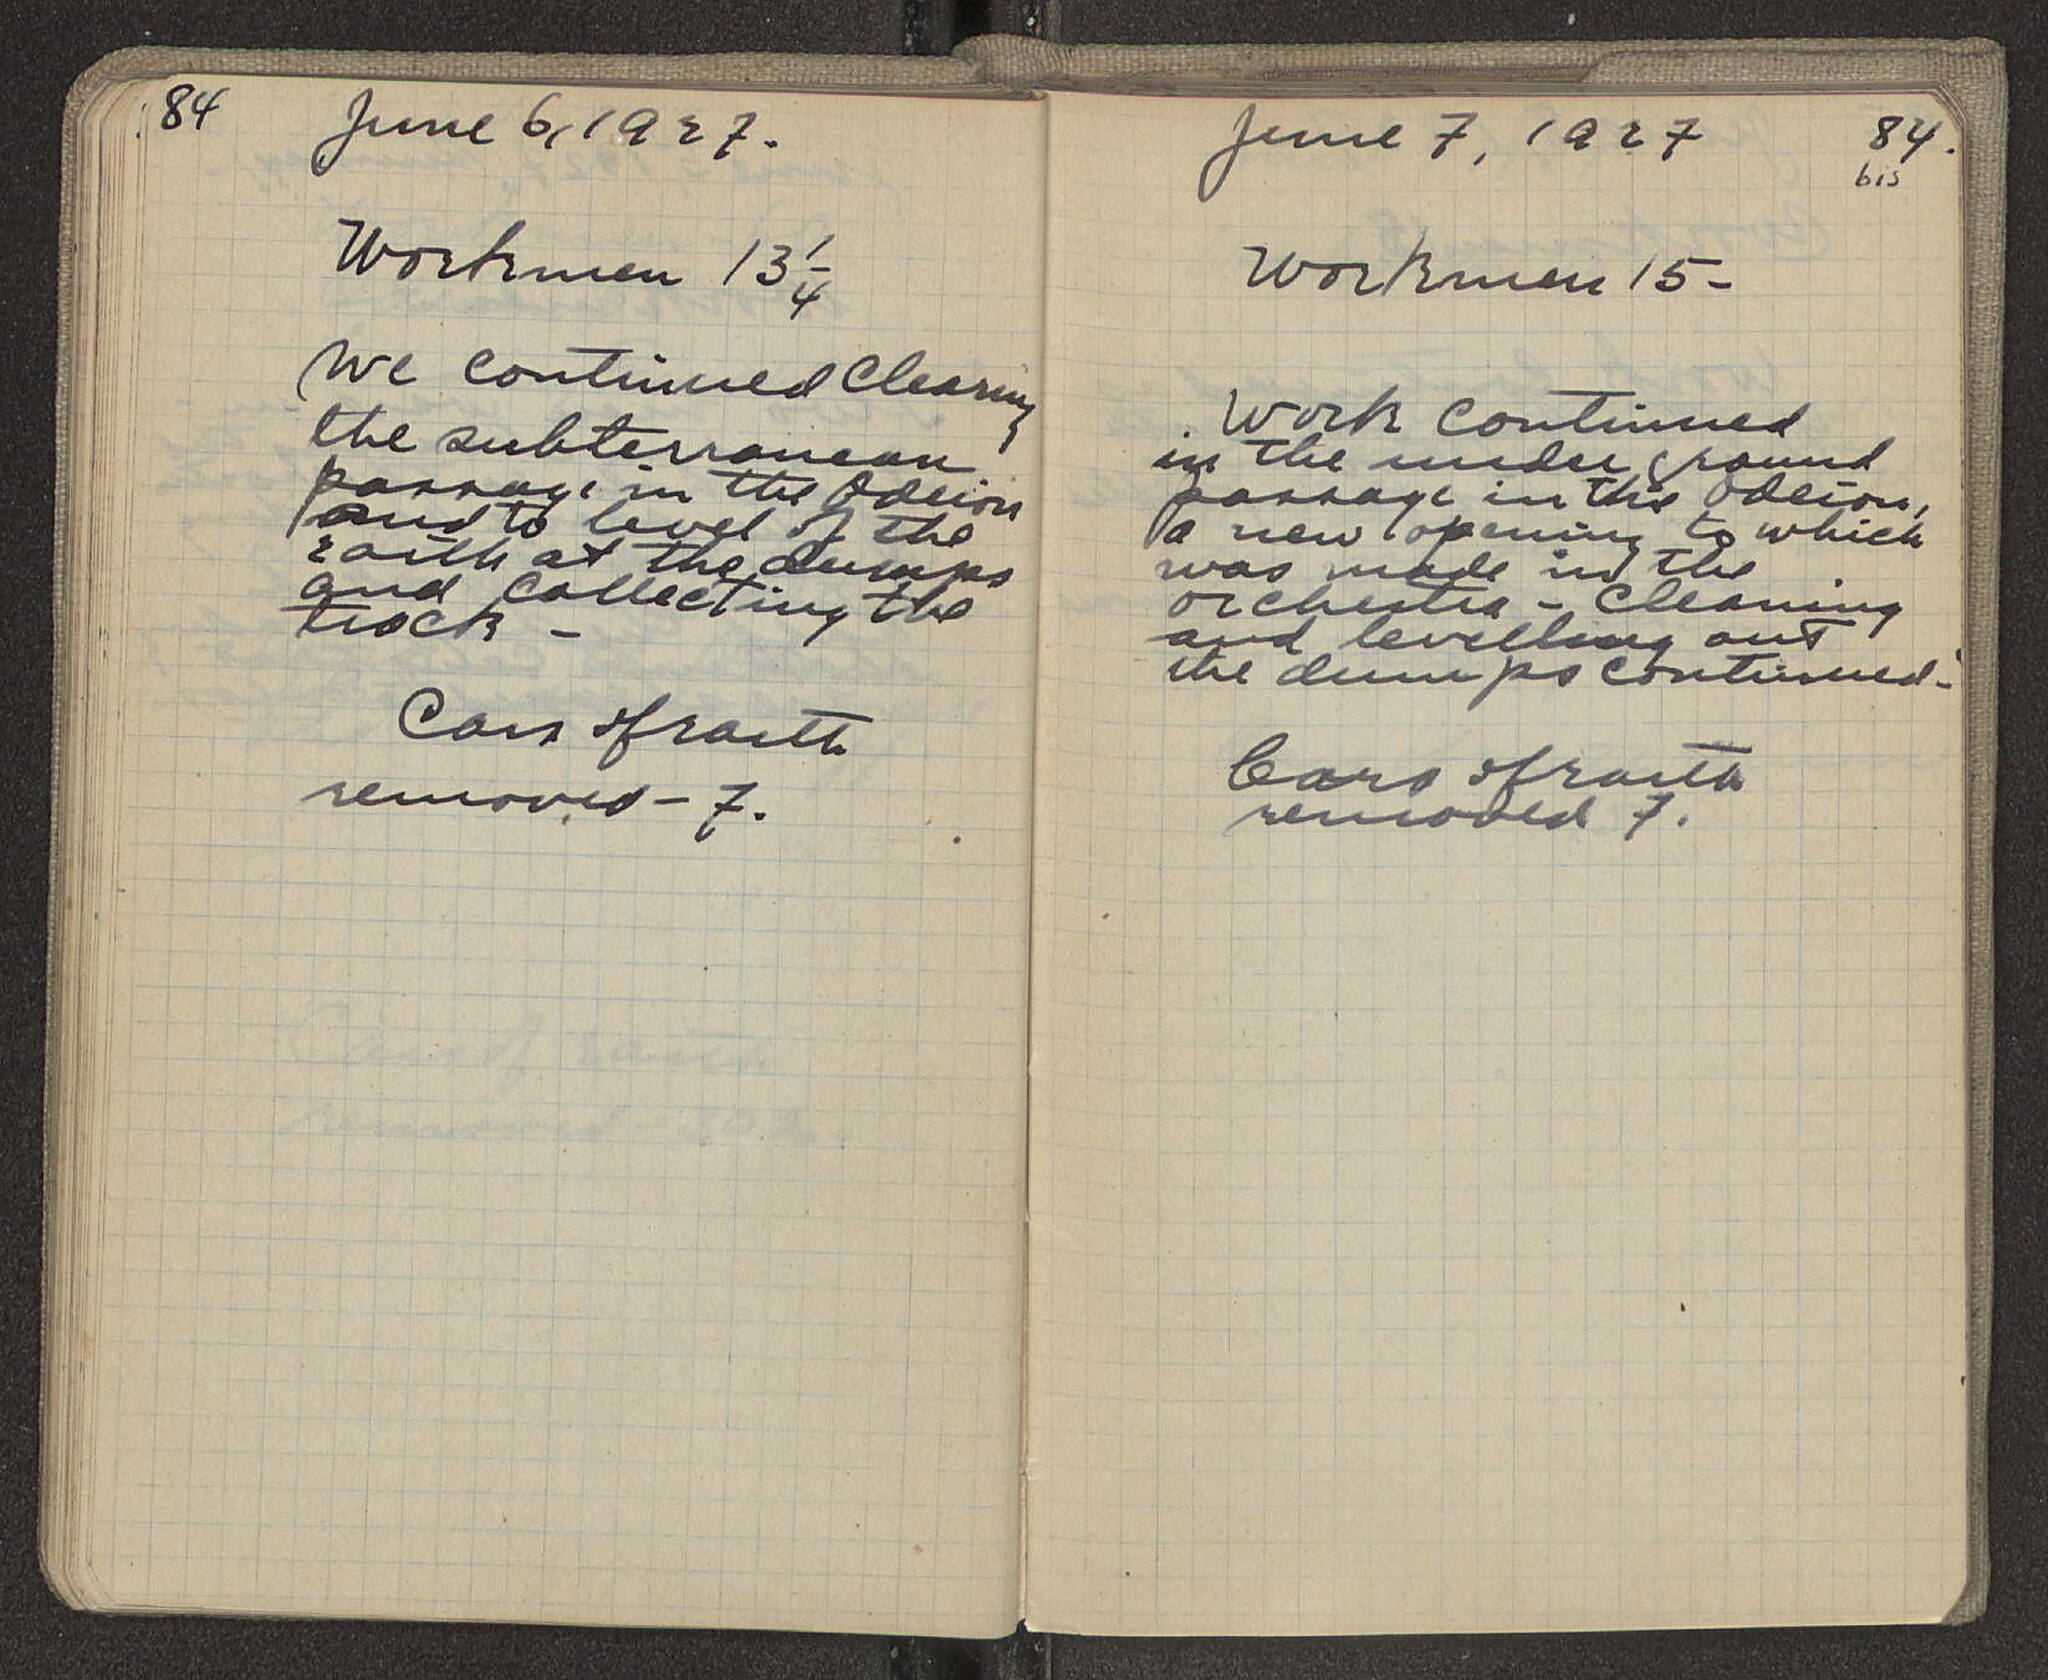 84
June 6, 1927.
Workmen 13 1/4
We continued clearing
the subterranean
passage in the Odeion
and to level of the
earth at the dumps
and collecting the
track -
Cars of earth
removed - 7.
June 7, 1927
84.
bis
Workmen 15 -
Work continued
in the under ground
passage in the Odeion,
a new opening to which
was made in the
orchestra - Cleaning
and levelling out
the dumps continued -
Cars of earth
removed 7.